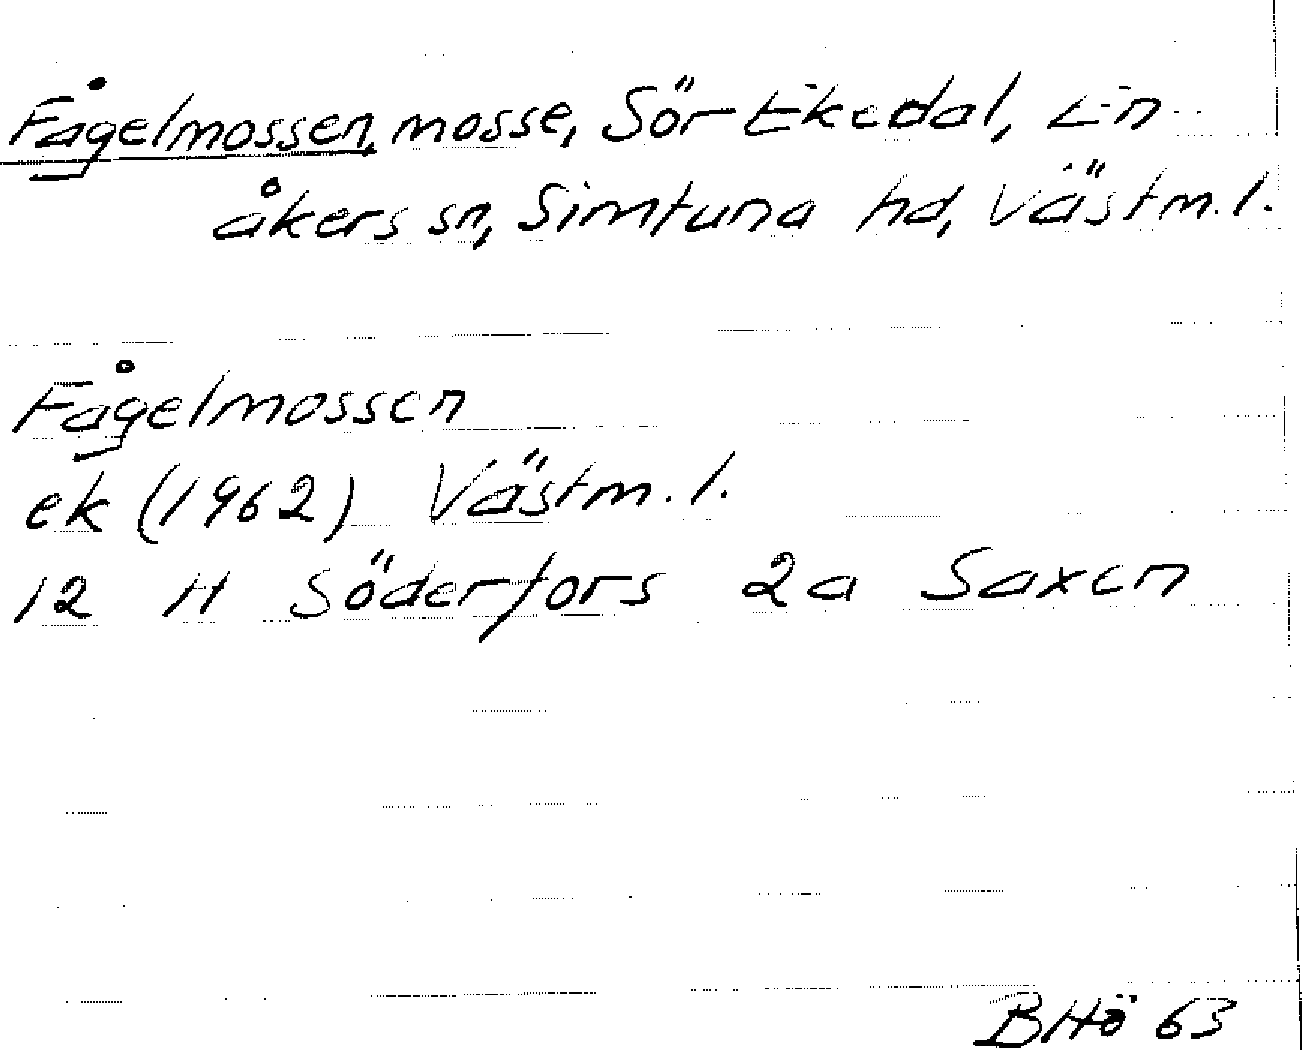 Fågelmossen, mosse, Sör-Ekedal, En-
åkers sn, Simtuna hd, Västm.l.
Fågelmossen
ek (1962) Västm.l.
12 H Söderfors 2a Saxen
BHö 63